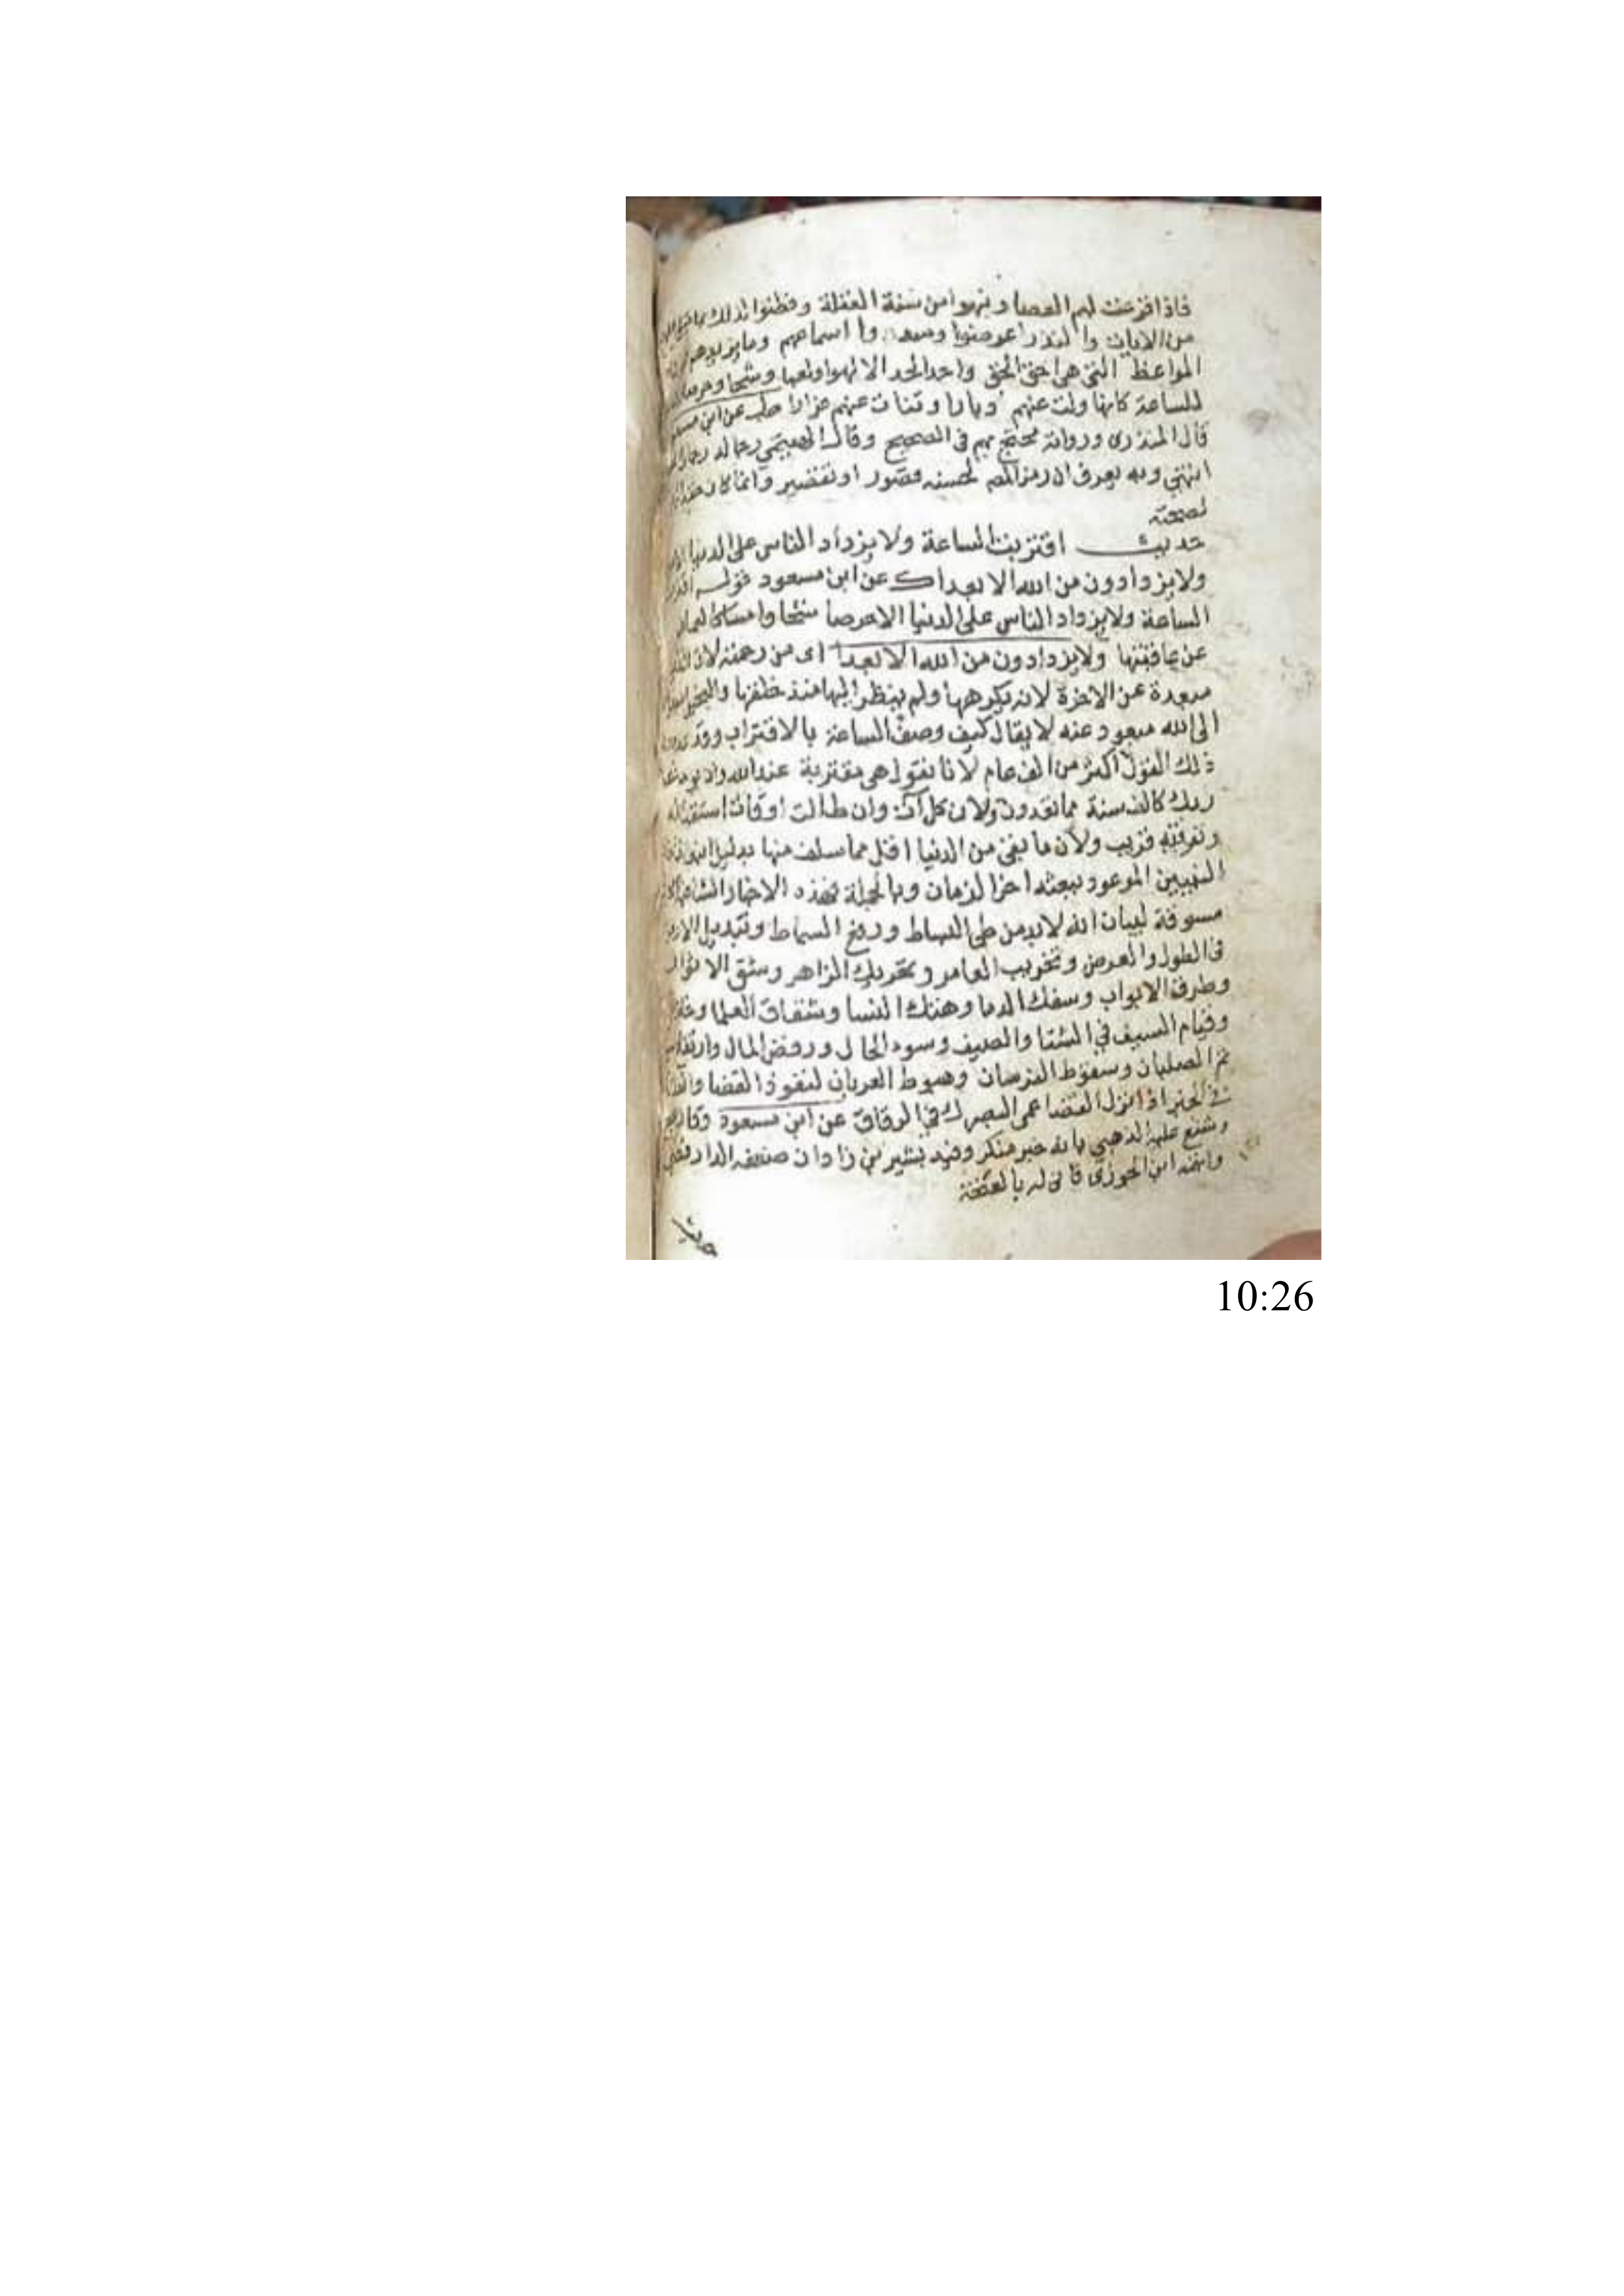 فاذا قرعت لهم العصا ونبهوا من سنة الغفلة وفطنوا لذلك بما
من الايات والنذر اعرضوا وسدوا اسماعهم وما يزيدهم
المواعظ التي هي احق الحق واجد الجد الا لهوا ولعبا وشحا وحرصا
للساعة كانها ولت عنهم دبارا وتناءت عنهم مزارا طب عن ابن مسعود
قال المنذري ورواته محتج بهم في الصحيح وقال الهيثمي رجاله رجال
انتهي وبه يعرف ان رمز المص لحسنه قصور او تقصير وانما كان حقه
لصحته
حديث اقتربت الساعة ولا يزداد الناس على الدنيا
ولا يزدادون من الله الا بعدا ك عن ابن مسعود قوله
الساعة ولا يزداد الناس على الدنيا الا حرصا شحا وامساكا
عن عاقبتها ولا يزدادون من الله الا بعدا اى من رحمته لان
مبعدة عن الاخرة لانه يكرهها ولم ينظر اليها منذ خلقها والبخيل
الى الله مبعود عنه لا يقال كيف وصف الساعة بالاقتراب وقد
ذلك القول اكثر من الف عام لانا نقول هى مقتربة عند الله وان يوما
ربك كالف سنة مما تعدون ولان كل ات وان طالت اوقات استقباله
وترقبه قريب ولان ما بقى من الدنيا اقل مما سلف منها بدليل
النبيين الموعود ببعثه اخر الزمان وبالجملة فهذه الاخبار
مسوقة لبيان انه لابد من طى البساط ورفع السماط وتبديل
فى الطول والعرض وتخريب العامر وتحريك الزاهر وشق الاثواب
وطرق الابواب وسفك الدما وهتك النسا وشقاق العلما
وقيام السيف في الشتا والصيف وسوء الحال ورفض المال
ثم الصلبان وسقوط الفرسان وهبوط العربان لنفوذ القضا
في الخبر اذا نزل القضا عمى البصر ك في الرقاق عن ابن مسعود وقال
وشنع عليه الذهبي بانه خبر منكر وفيه بشير بن زاذان ضعفه الدارقطني
واتهمه ابن الجوزى فانى له بالصحة
حديث
10:26